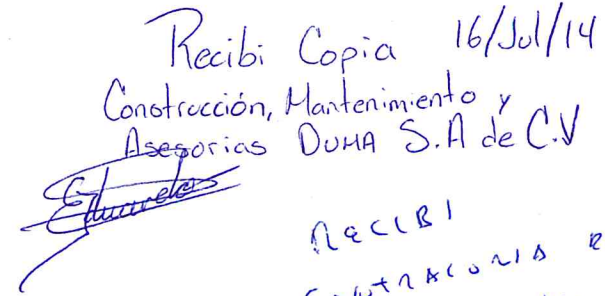 Recibi Copia 16/Jul/14
Construcción, Mantenimiento y
Asesorias DUMA S.A de C.V
Eduardo
RECIBI